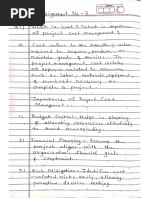 Assignment No - 3
Q1) What is cost? Explain importance
of project cost management?
→ Cost refers to the monetary value
required to acquire, produce or
maintain goods & services. In
project management, it includes
all expenses related to resources
such as labor, materials, equipment
& overhead needed to complete
the project.
Importance of Project Cost
Management:
1) Budget Control: Helps in planning
& allocating resources effectively
to avoid overspending.
2) Financial Planning: Ensures the
project aligns with the
organization financial goals
& constraints.
3) Risk Mitigation: Identifies cost
related risks early, allowing
proactive decision making.